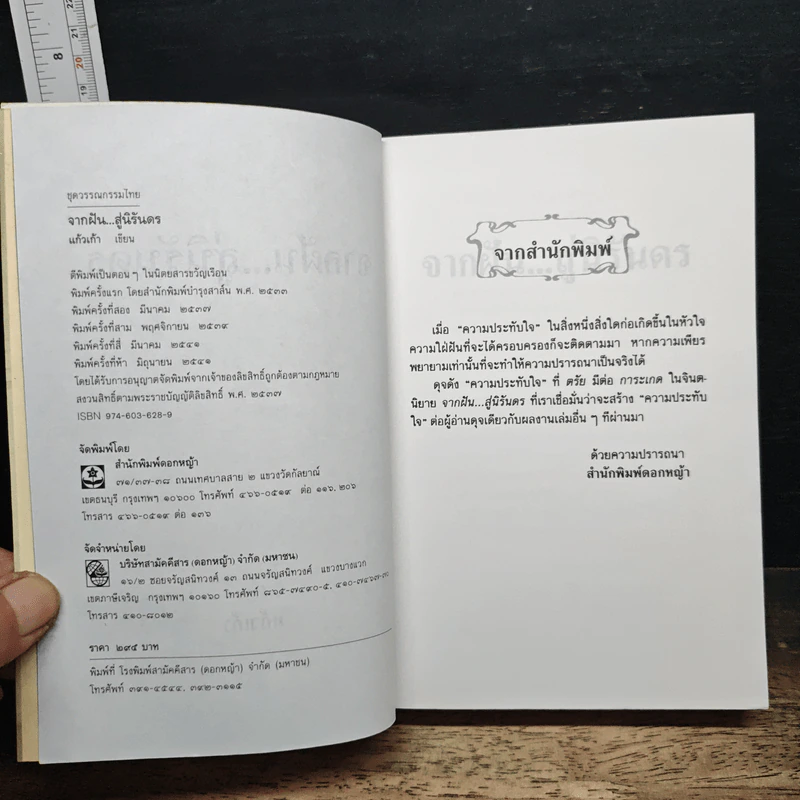 8
22
21
20
19
ชุดวรรณกรรมไทย
จากฝัน...สู่นิรันดร
แก้วเก้า เขียน
ตีพิมพ์เป็นตอน ๆ ในนิตยสารขวัญเรือน
พิมพ์ครั้งแรก โดยสำนักพิมพ์บำรุงสาส์น พ.ศ. ๒๕๓๓
พิมพ์ครั้งที่สอง มีนาคม ๒๕๓๗
พิมพ์ครั้งที่สาม พฤศจิกายน ๒๕๓๙
พิมพ์ครั้งที่สี่ มีนาคม ๒๕๔๑
พิมพ์ครั้งที่ห้า มิถุนายน ๒๕๔๑
โดยได้รับการอนุญาตจัดพิมพ์จากเจ้าของลิขสิทธิ์ถูกต้องตามกฎหมาย
สงวนสิทธิ์ตามพระราชบัญญัติลิขสิทธิ์ พ.ศ. ๒๕๓๗
ISBN 974-603-628-9
จัดพิมพ์โดย
สำนักพิมพ์ดอกหญ้า
๗๑/๓๗-๓๘ ถนนเทศบาลสาย ๒ แขวงวัดกัลยาณ์
เขตธนบุรี กรุงเทพฯ ๑๐๖๐๐ โทรศัพท์ ๔๖๖-๐๕๑๙ ต่อ ๑๑๖, ๒๐๖
โทรสาร ๔๖๖-๐๕๑๙ ต่อ ๑๓๖
จัดจำหน่ายโดย
บริษัทสามัคคีสาร (ดอกหญ้า) จำกัด (มหาชน)
๑๖/๒ ซอยจรัญสนิทวงศ์ ๑๓ ถนนจรัญสนิทวงศ์ แขวงบางแวก
เขตภาษีเจริญ กรุงเทพฯ ๑๐๑๖๐ โทรศัพท์ ๘๖๕-๗๔๙๐-๕, ๔๑๐-๗๔๖๗-๗๐
โทรสาร ๔๑๐-๘๐๑๒
ราคา ๒๙๕ บาท
พิมพ์ที่ โรงพิมพ์สามัคคีสาร (ดอกหญ้า) จำกัด (มหาชน)
โทรศัพท์ ๓๙๑-๔๕๔๔, ๓๙๒-๓๑๑๕
จากสำนักพิมพ์
เมื่อ “ความประทับใจ” ในสิ่งหนึ่งสิ่งใดก่อเกิดขึ้นในหัวใจ
ความใฝ่ฝันที่จะได้ครอบครองก็จะติดตามมา หากความเพียร
พยายามเท่านั้นที่จะทำให้ความปรารถนาเป็นจริงได้
ดุจดัง “ความประทับใจ” ที่ ตรัย มีต่อ การะเกด ในจินต-
นิยาย จากฝัน...สู่นิรันดร ที่เราเชื่อมั่นว่าจะสร้าง “ความประทับ
ใจ” ต่อผู้อ่านดุจเดียวกับผลงานเล่มอื่น ๆ ที่ผ่านมา
ด้วยความปรารถนา
สำนักพิมพ์ดอกหญ้า